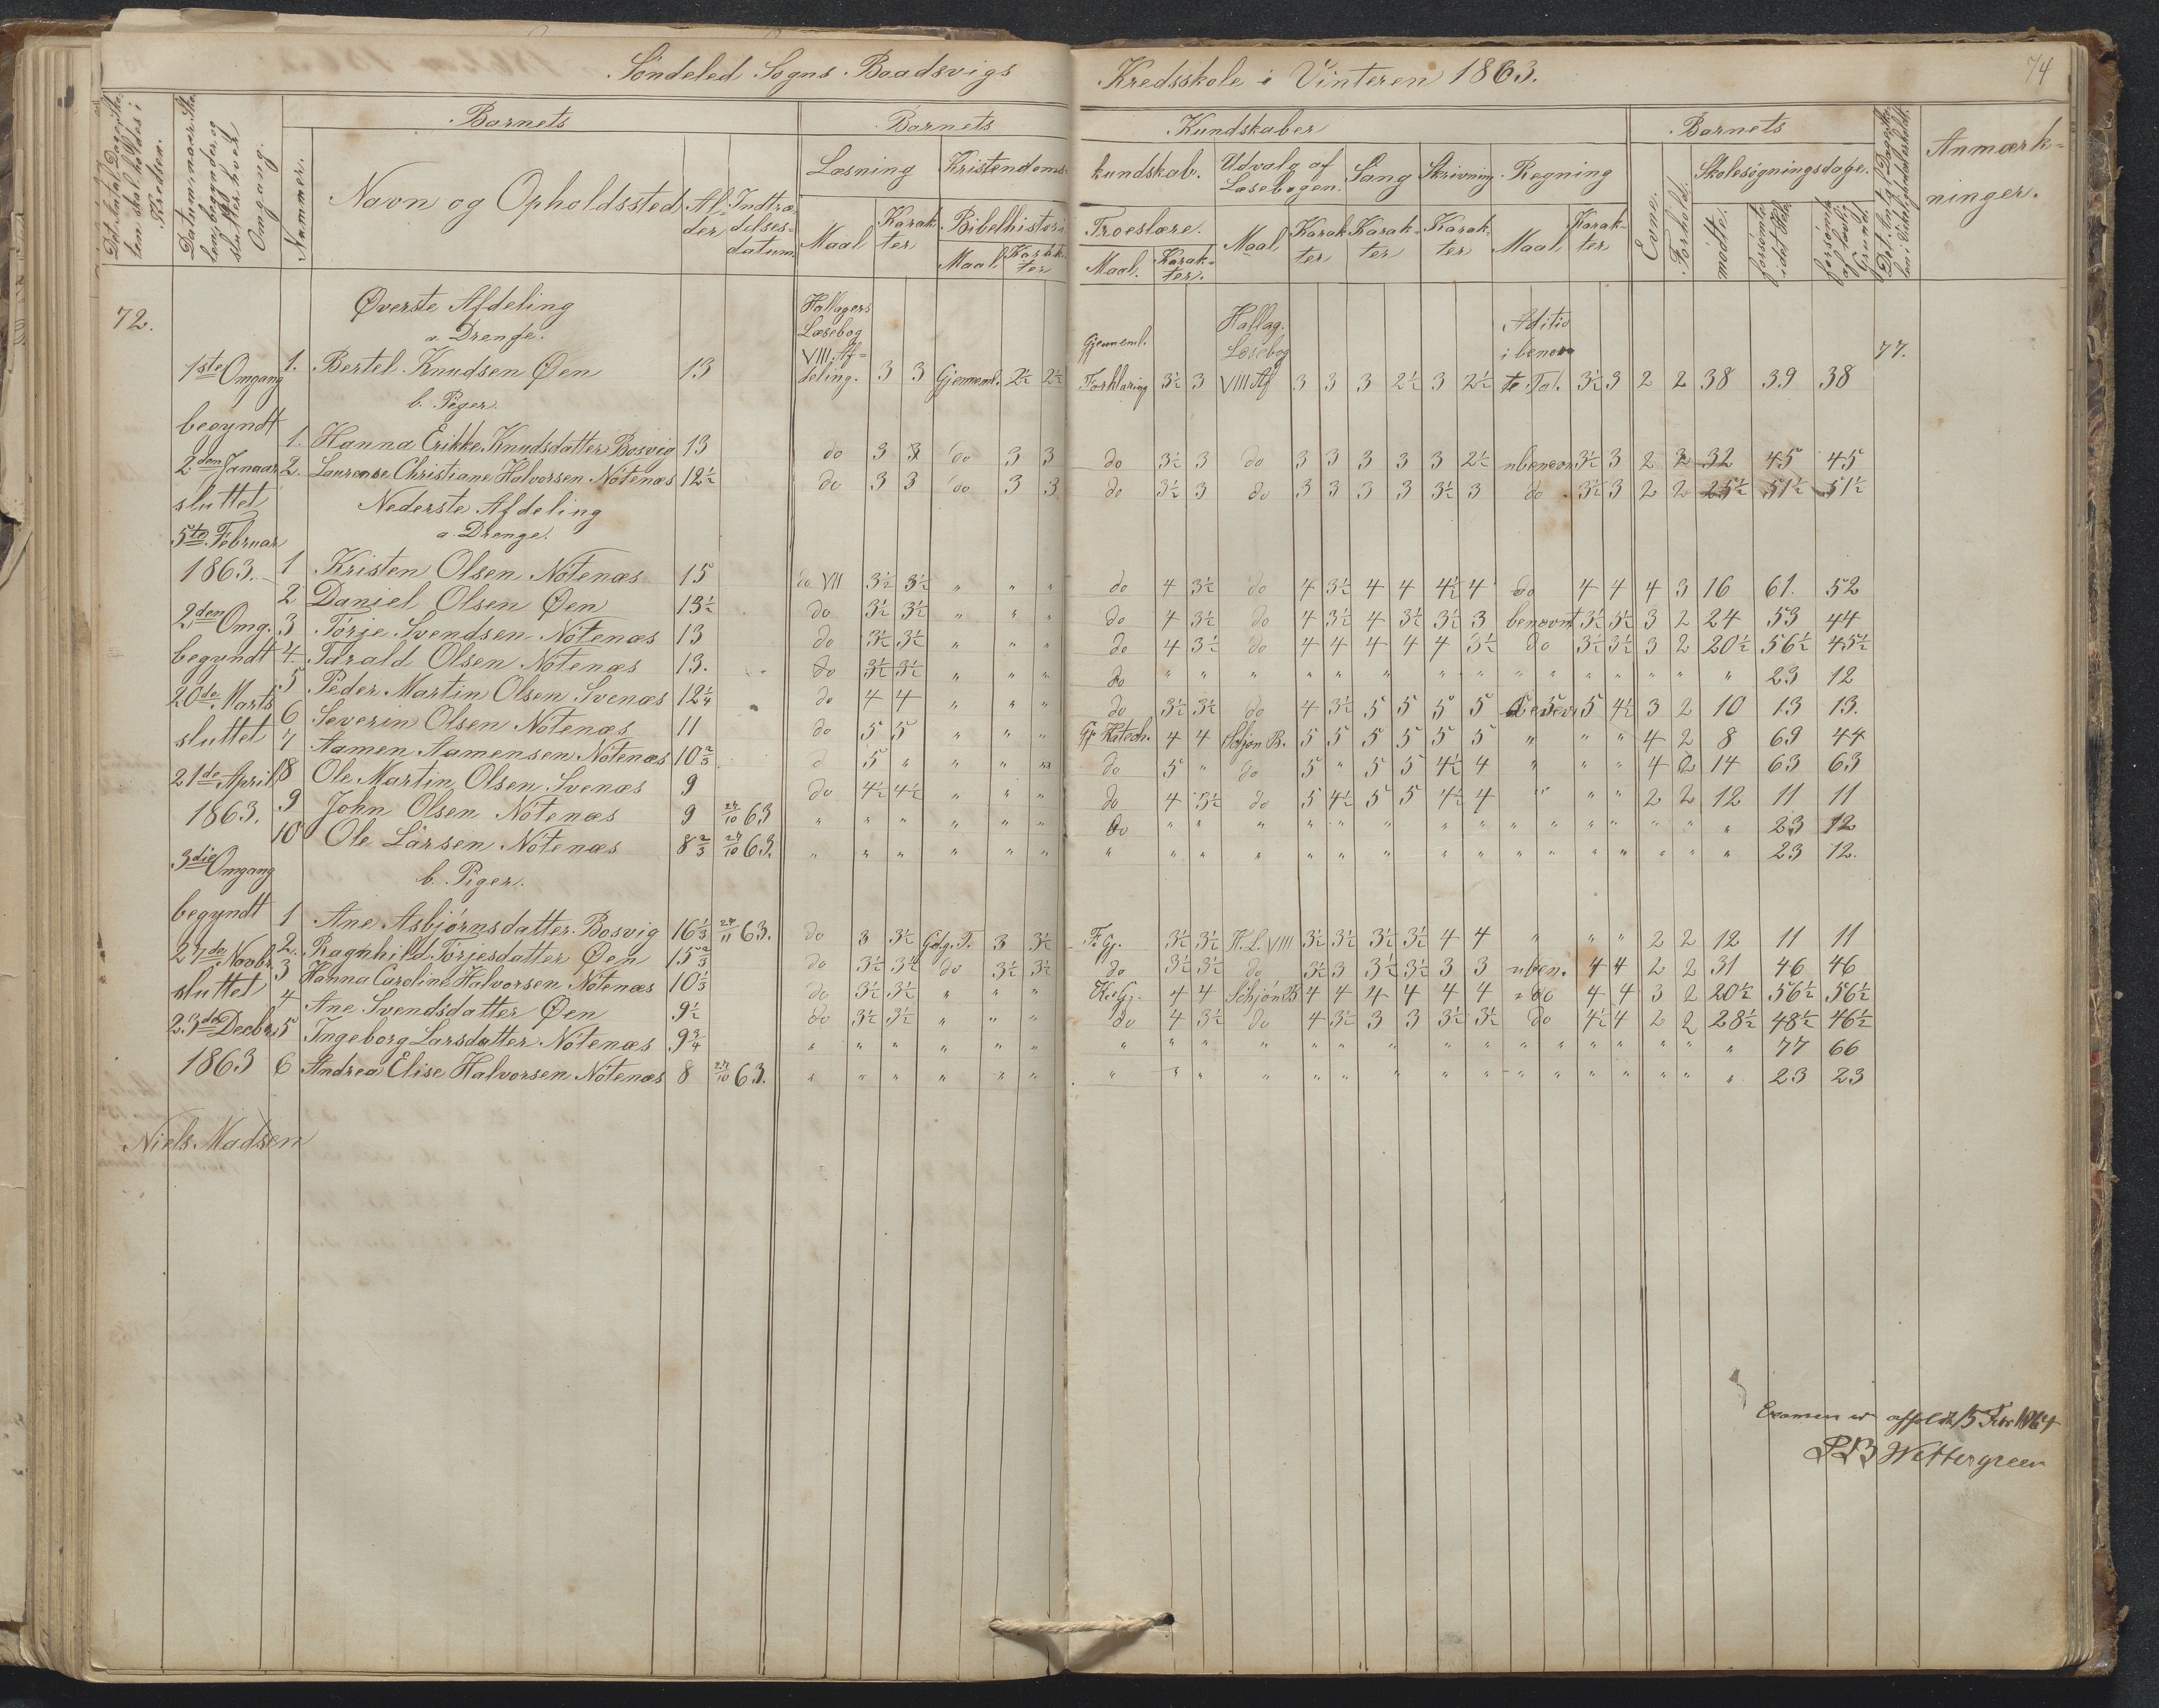 Söndeled Sogns Baadsvigs Kredsskole i Vinteren 1863.
74
Det Antal Dage Skolen skal holdes i Kredsen.
Datum naar Skolen begyndes og slutter hver Omgang.
Nummer.
Barnets
Navn og Opholdssted
Alder
Indtrædelsesdatum
Barnets Kundskaber
Læsning
Maal
Karakter
Kristendomskundskab.
Bibelhistorie
Maal
Karakter
Troeslære.
Maal.
Karakter.
Udvalg af Læsebogen.
Maal
Karakter
Sang
Karakter
Skrivning
Karakter
Regning
Maal
Karakter
Barnets
Evne.
Forhold.
Skolesøgningsdage.
mødte.
forsømte i det Hele.
forsømte af lovlig Grund.
Anmærkninger.
72.
Øverste Afdeling
a. Drenge.
Hallagers Læsebog VIII Afdeling.
Gjenneml. Forklaring
Hallag. Læsebog VIII Af
Aditio i benevnte Tal.
77.
1. Bertel Knudsen Øen 13 3 3 Gjenneml. 2½ 2½ 3½ 3 3 3 3 2½ 3 2½ 3½ 3 2 2 38 39 38
b. Piger.
1. Hanna Erikke Knudsdatter Bosvig 13 do 3 3 do 3 3 do 3½ 3 do 3 3 3 3 3 2½ ubenevn 3½ 3 2 2 32 45 45
2. Laurense Christiane Halvorsen Nötenæs 12½ do 3 3 do 3 3 do 3½ 3 do 3 3 3 3 3½ 3 do 3½ 3 2 2 25½ 51½ 51½
Nederste Afdeling
a. Drenge.
1 Kristen Olsen Nötenæs 15 do VII 3½ 3½ " " " do 4 3½ do 4 3½ 4 4 4½ 4 do 4 4 4 3 16 61. 52
2 Daniel Olsen Øen 13½ do 3½ 3½ " " " do 4 3½ do 4 3½ 4 3½ 3½ 3 benevnt 3½ 3½ 3 2 24 53 44
3 Törje Svendsen Nötenæs 13 do 3½ 3½ " " " do 4 3½ do 4 4 4 4 4 3½ do 3½ 3½ 3 2 20½ 56½ 45½
4. Tarald Olsen Nötenæs 13. do 3½ 3½ " " " do " " " " " " " " " " " " " " " 23 12
5 Peder Martin Olsen Svenæs 12¼ do 4 4 " " " do 3½ 3½ do 4 3½ 5 5 5 5 5 4½ 3 2 10 13 13.
6 Severin Olsen Nötenæs 11 do 5 5 " " " Gj Katech. 4 4 Schjön B. 5 5 5 5 5 5 " " " 4 2 8 69 44
7 Aamen Aamensen Nötenæs 10⅔ d 5 " " " " do 5 " do 5 " 5 5 4½ 4 " " " 4 2 14 63 63
8 Ole Martin Olsen Svenæs 9 do 4½ 4½ " " " do 4 3½ do 5 4½ 5 5 4½ 4 " " " 2 2 12 11 11
9 John Olsen Nötenæs 9 27/10 63 " " " " " " do " " " " " " " " " " " " " " " 23 12
10 Ole Larsen Nötenæs 8⅔ 27/10 63. " " " " " " " " " " " " " " " " " " " " " " 23 12.
b. Piger.
1 Ane Asbjörnsdatter Bosvig 16⅓ 27/11 63. do 3 3½ Gdg. T. 3 3½ F. Gj. 3½ 3½ H. L. VIII 3½ 3½ 3½ 3½ 4 4 " " " 2 2 12 11 11
2. Ragnhild Törjesdatter Øen 15⅔ do 3½ 3½ do 3½ 3½ do 3½ 3½ do 3½ 3 3½ 3½ 3 3 uben. 4 4 2 2 31 46 46
3 Hanna Caroline Halvorsen Nötenæs 10⅓ do 3½ 3½ " " " K. Gj. 4 4 Schjön B 4 4 4 4 4 4 " do 4 4 3 2 20½ 56½ 56½
4 Ane Svendsdatter Øen 9½ do 3½ 3½ " " " do 4 3½ do 4 3½ 3 3 3½ 3½ do 4½ 4 2 2 28½ 48½ 46½
5 Ingeborg Larsdatter Nötenæs 9¾ " " " " " " " " " " " " " " " " " " " " " " 77 66
6 Andrea Elise Halvorsen Nötenæs 8 27/10 63. " " " " " " " " " " " " " " " " " " " " " " 23 23
1ste Omgang
begyndt
2den Januar
sluttet
5te Februar
1863.
2den Omg.
begyndt
20de Marts
sluttet
21de April
1863.
3die Omgang
begyndt
27de Novbr.
sluttet
23de Decbr
1863
Niels Madsen
Examen er affoldt 15 Febr 1864
PB Wettergreen